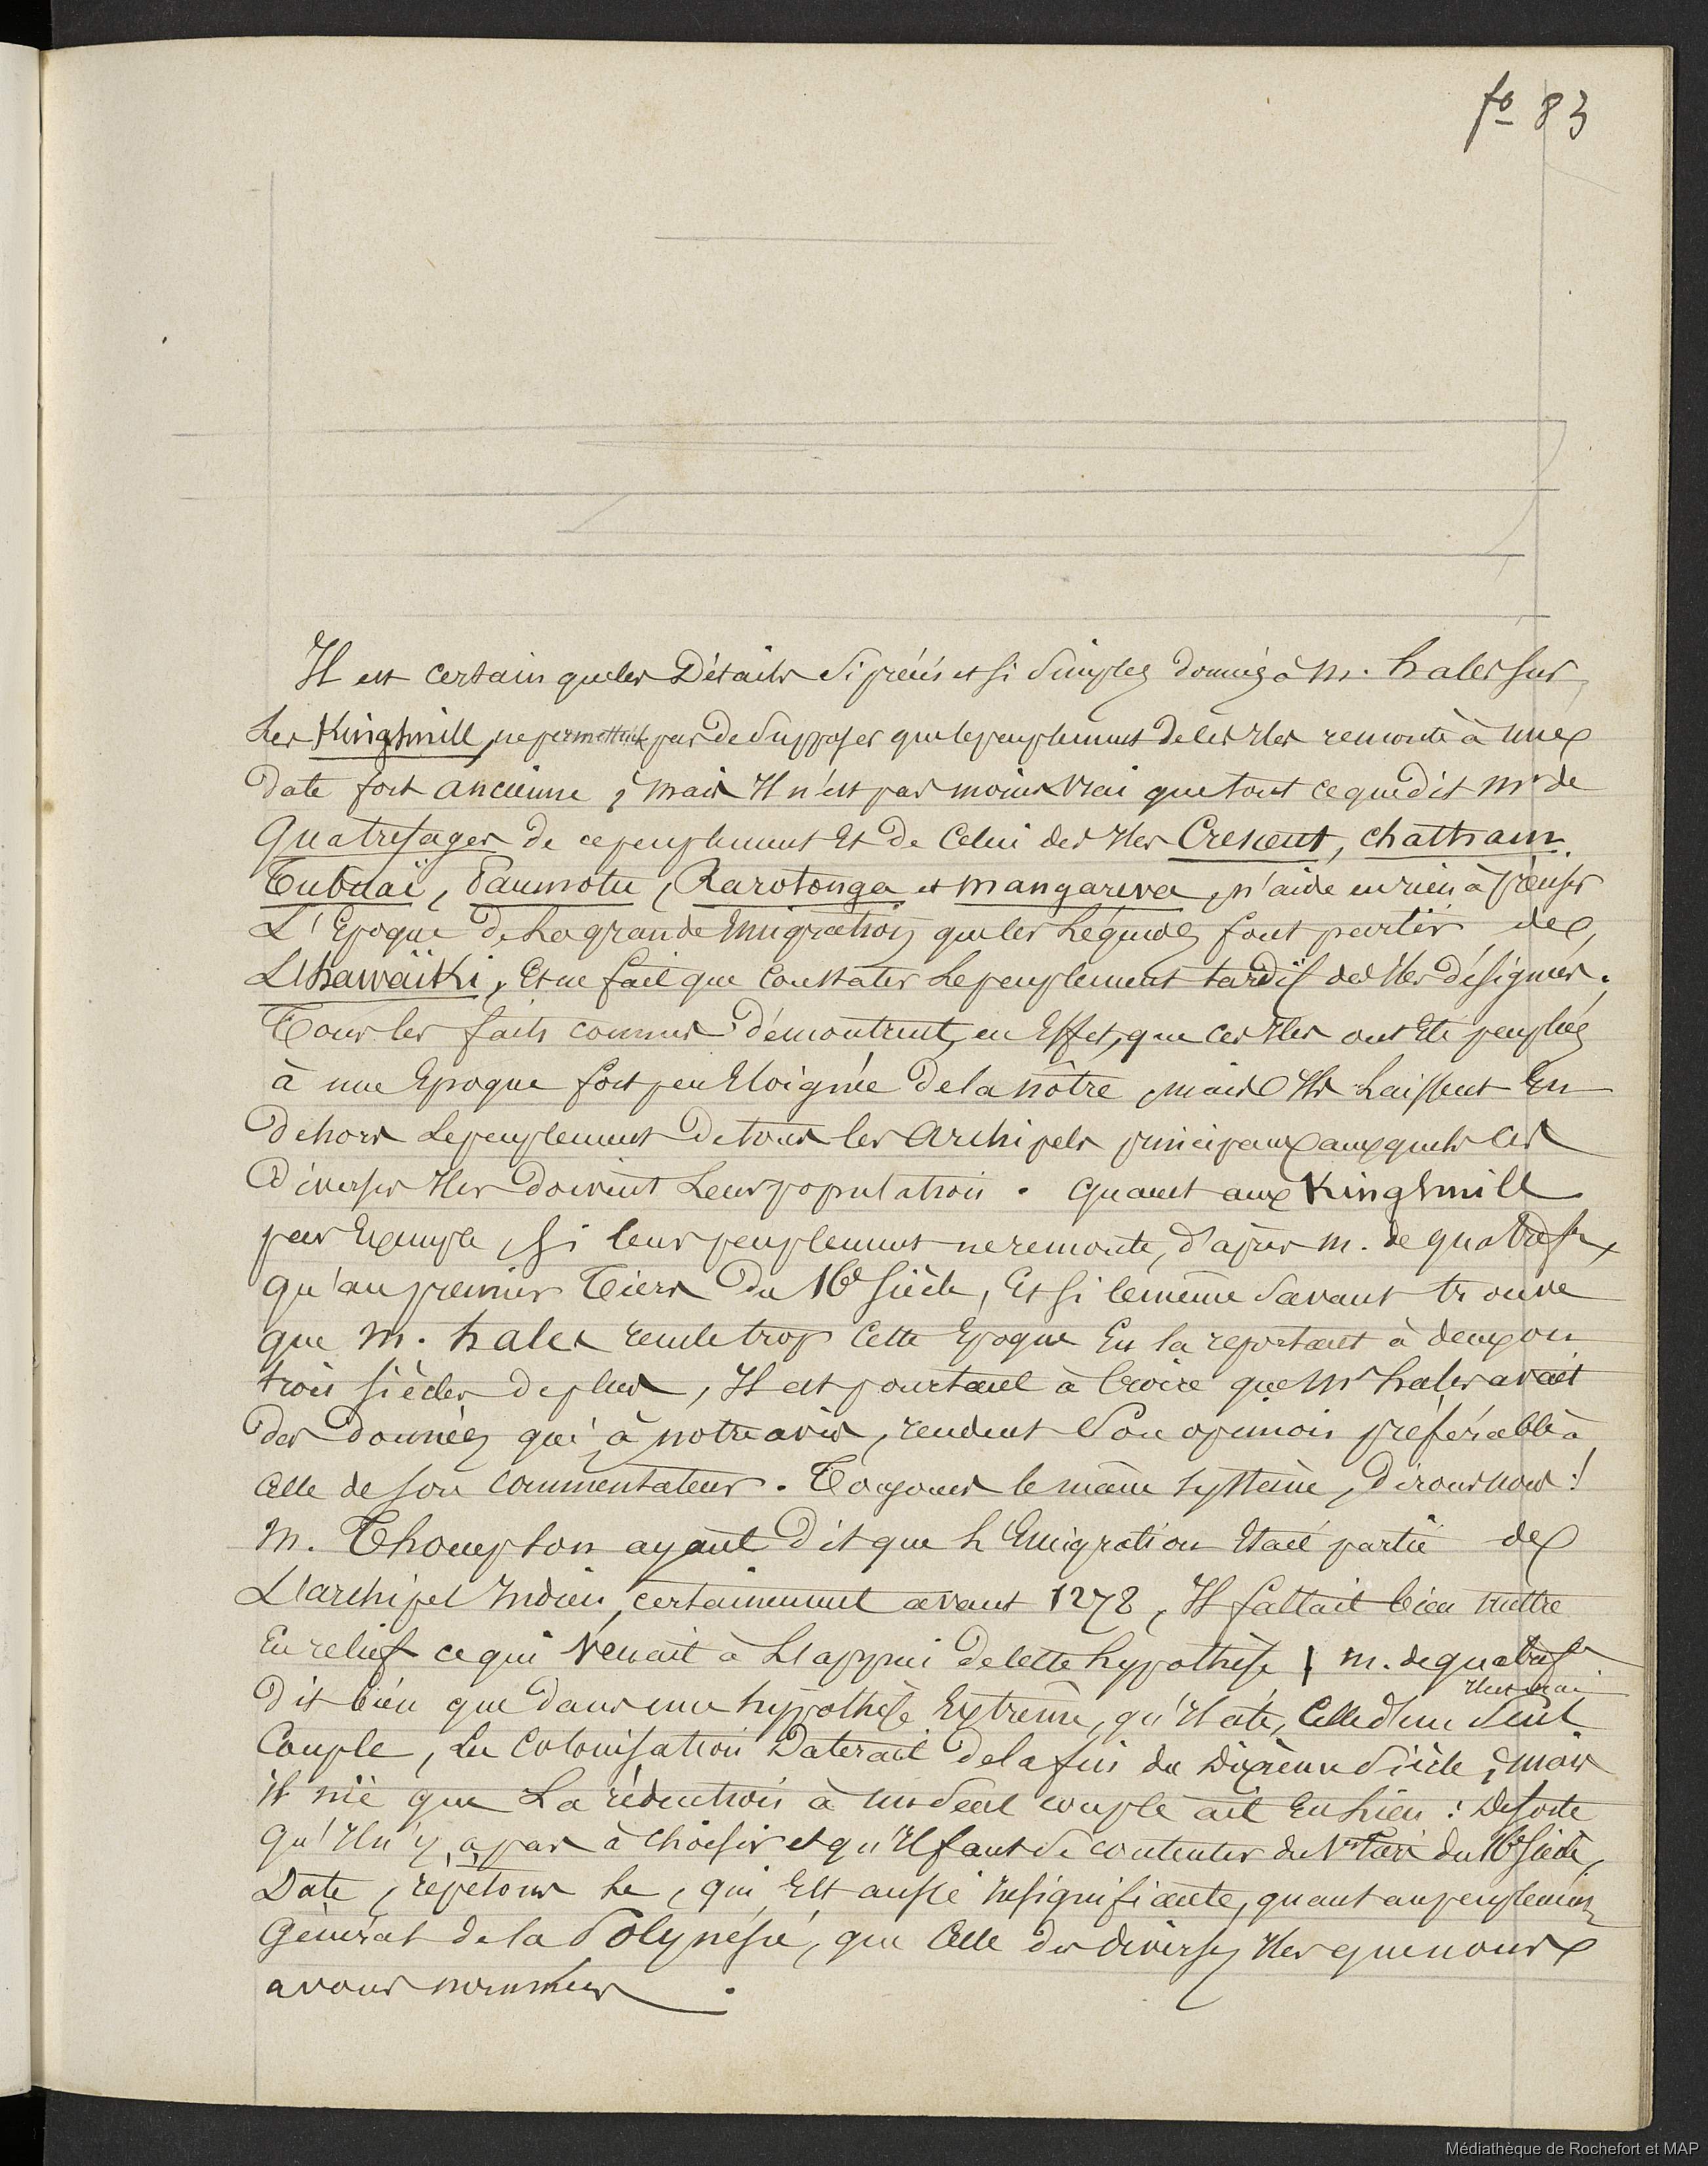 fo 83
Il est certain que les Détails si précis et si Simples donnés à M. hales sur
les Kingsmill, ne permettent pas de Supposer que le peuplement de ces Iles remonte à une
Date fort ancienne ; mais Il n'est pas moins Vrai que tout ce que dit Mr de
Quatrefages de ce peuplement Et de Celui des Iles Crescent, chattam,
Tubuaï, Paumotu, Rarotonga et mangareva, n'aide en rien à préciser
L'Epoque de la grande Emigration que les Légendes font partir de
L'hawaïki, Et ne fait que Constater le peuplement tardif des Iles désignées.
Tous les faits connus démontrent, en Effet, que ces Iles ont Eté peuplées
à une Epoque fort peu Eloignée de la nôtre, mais Ils Laissent En
Dehors Le peuplement De tous les Archipels principaux auxquels ces
Diverses Iles doivent Leur population. Quant aux Kingsmill
par Exemple, Si leur peuplement ne remonte, d'après M. de quatref.,
qu'au premier Tiers Du 16e Siècle, Et Si le même Savant trouve
que M. hales recule trop Cette Epoque En la reportant à deux ou
trois Siècles De plus, Il est pourtant à Croire que Mr hales avait
Des Données qui à notre avis, rendent Son opinion préférable à
celle de son commentateur. Toujours le même Système, Dirons nous !
M. Thompson ayant Dit que L'Emigration Etait partie de
L'archipel Indien, certainement avant 1278, Il fallait bien mettre
En relief ce qui Venait à L'appui de cette hypothèse ; M. de quatref.
Il est vrai
Dit bien que dans une hypothèse Extrême, qu'Il cite, Celle d'un Seul
Couple, La Colonisation Daterait De la fin du Dixième Siècle ; mais
il nie que La réduction à un Seul couple ait Eu Lieu : De sorte
qu'Il n'y a pas à Choisir et qu'Il faut Se contenter du 1er Tiers du 16e Siècle,
Date, répétons le, qui Est aussi Insignifiante, quant au peuplement
Général de la Polynésie, que Celle des diverses Iles que nous
avons nommées.
Médiathèque de Rochefort et MAP